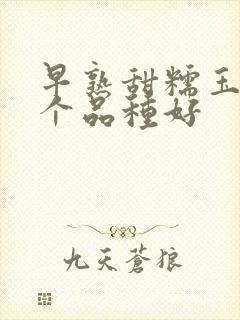 早熟甜糯玉
个品種好
九天蒼狼